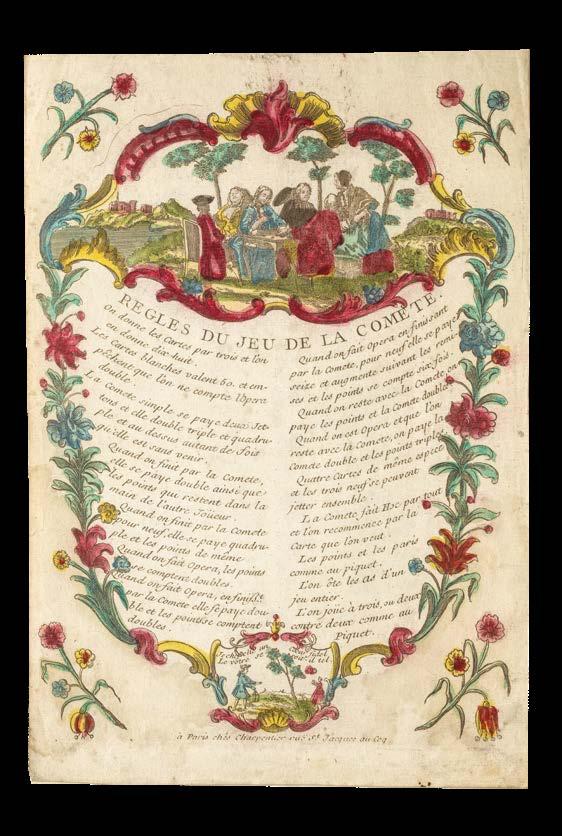 REGLES DU JEU DE LA COMETE.
On donne les Cartes par trois et l'on
en donne dix-huit
Les Cartes blanches valent 60. et em-
pêchent que l'on ne compte l'Opera
double.
La Comete simple se paye deux Jet-
tons et elle double triple et quadru-
ple et au dessus autant de fois
qu'elle est sans venir.
Quand on finit par la Comete,
elle se paye double ainsi que
les points qui restent dans la
main de l'autre Joüeur.
Quand on finit par la Comete
pour neuf, elle se paye quadru-
ple et les points de même
Quand on fait Opera, les points
se comptent doubles.
Quand on fait Opera, en finisst.
par la Comete elle se paye dou-
ble et les points se comptent
doubles.
Quand on fait Opera en finissant
par la Comete, pour neuf elle se paye
seize et augmente suivant les remi-
ses et les points se compte six fois.
Quand on reste avec la Comete, on
paye les points et la Comete doubles
Quand on est Opera et que l'on
reste avec la Comete, on paye la
Comete double et les points triples
Quatre Cartes de même espece
et les trois neuf se peuvent
jetter ensemble.
La Comete fait Hoc par tout
et l'on recommence par la
Carte que l'on veut.
Les points et les paris
comme au piquet.
L'on ôte les As d'un
jeu entier.
L'on joüe à trois, ou deux
contre deux comme au
Piquet.
Je cherche un Cœur fidel
Le vôtre se il tel
à Paris chés Charpentier ruë St. Jacques au Coq